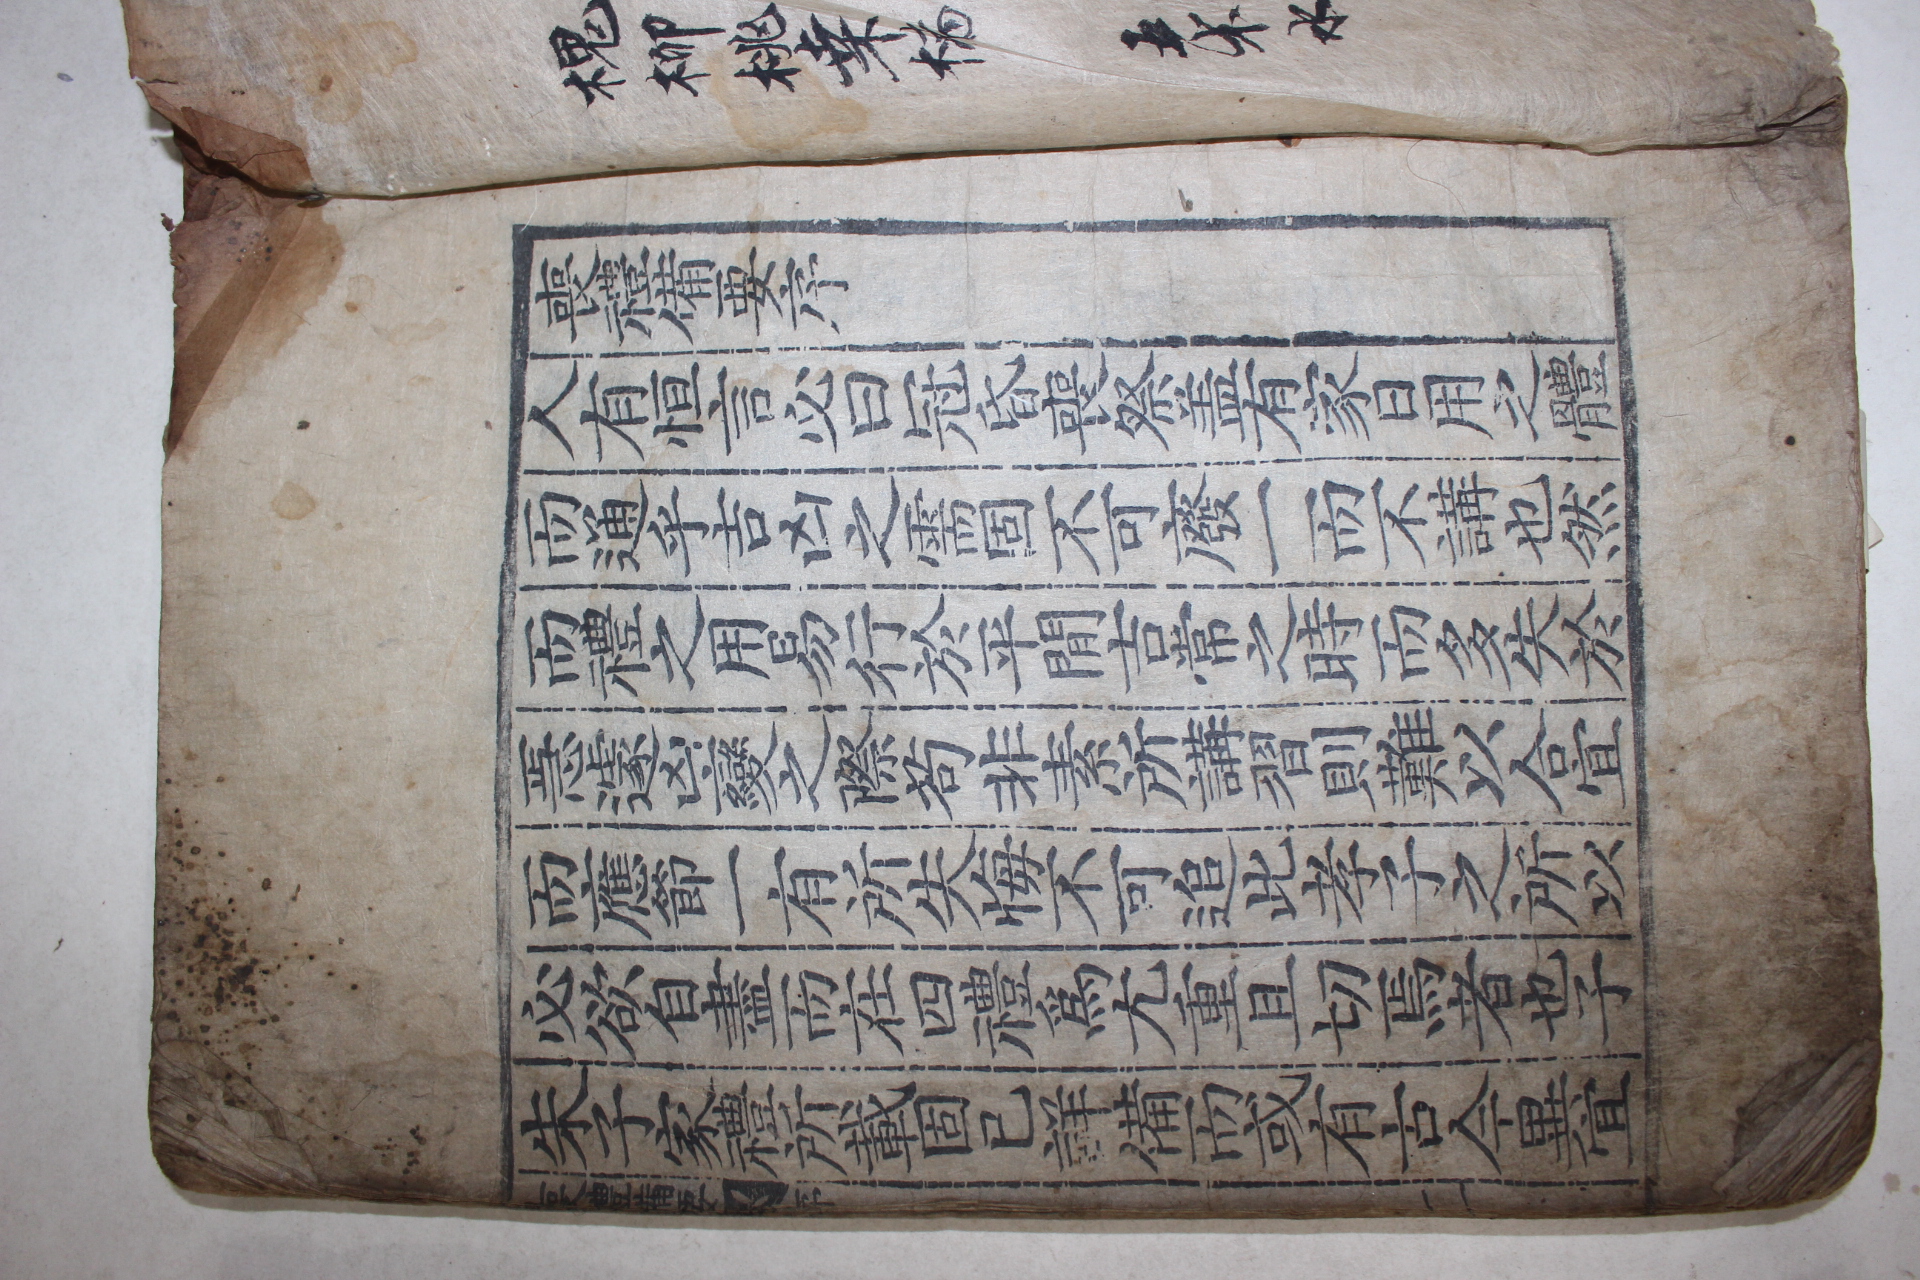 槐柳桃桑
喪禮備要序
人有恒言必曰冠昏喪祭盖有家日用之體
而通乎吉凶之需固不可廢一而不講也然
而禮之用易行於平閒吉常之時而多失於
悤遽凶變之際苟非素所講習則難以合宜
而應節一有所失悔不可追此孝子之所以
必欲自盡而在四禮爲尤重且切焉者也子
朱子家禮所載固已詳備而或有古今異宜
喪禮備要 序 一